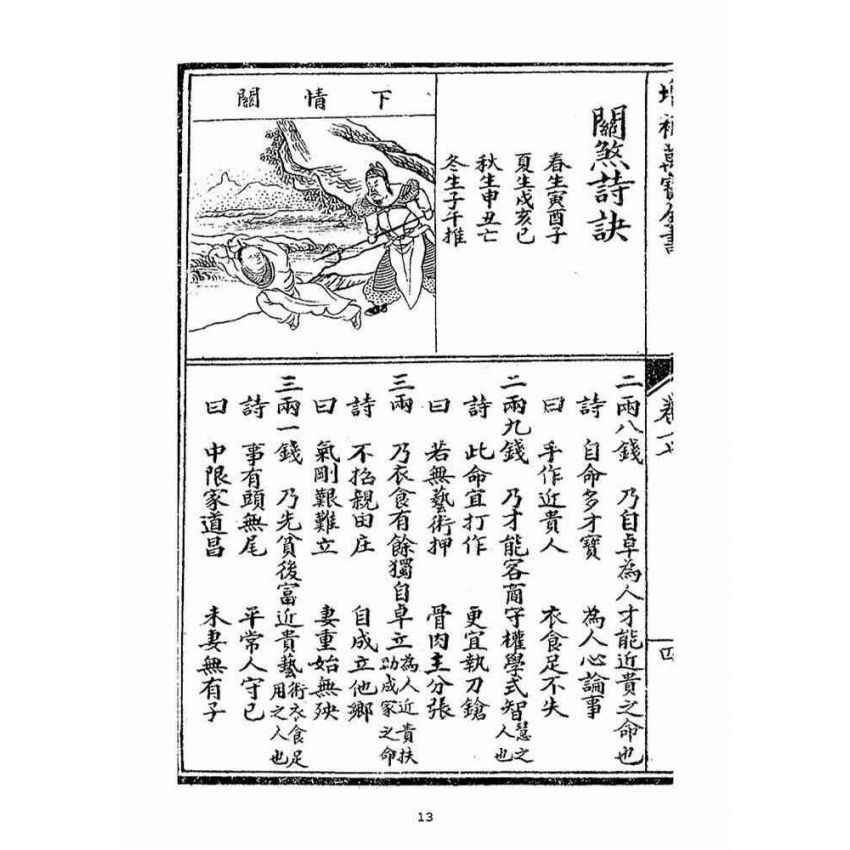 增補萬寶全書
卷一
四
關煞詩訣
春生寅酉子
夏生戌亥巳
秋生申丑亡
冬生子午推
下情關
二兩八錢 乃自卓為人才能近貴之命也
詩 自命多才寶 為人心論事
曰 手作近貴人 衣食足不失
二兩九錢 乃才能客商守權學式智慧之人也
詩 此命宜打作 更宜執刀鎗
曰 若無藝術押 骨肉主分張
三兩 乃衣食有餘獨自卓立為人近貴扶助成家之命
詩 不招親田庄 自成立他鄉
曰 氣剛艱難立 妻重始無殃
三兩一錢 乃先貧後富近貴藝術衣食足用之人也
詩 事有頭無尾 平常人守已
曰 中限家道昌 未妻無有子
13